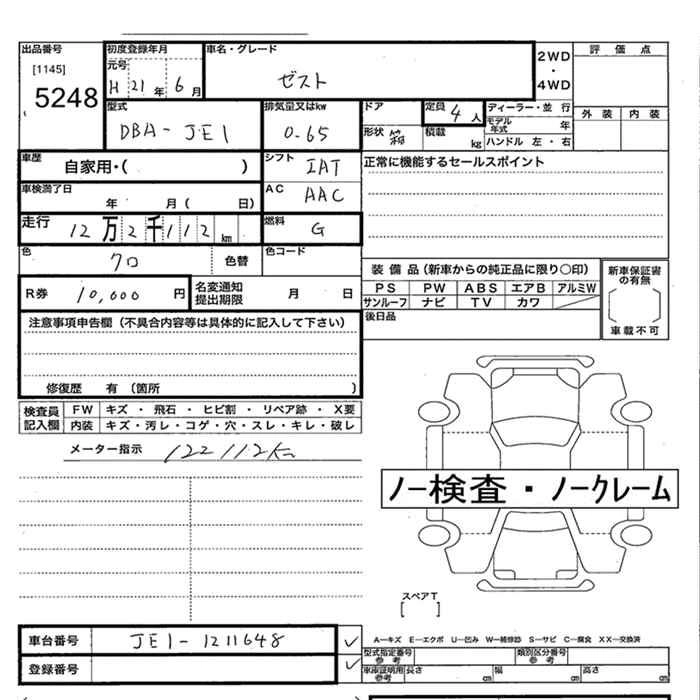 出品番号 初度登録年月 車名・グレード 評 価 点
[1145] 元号 2WD
5248 H 21 年 6 月 ゼスト ・
4WD
型式 排気量又はkw ドア 定員 4 人 ディーラー・並 行 外 装 内 装
DBA-JE1 0.65 モデル年式 年
形状 積載 kg ハンドル 左 ・ 右
車歴 自家用・( ) シフト IAT 正常に機能するセールスポイント
車検満了日 年 月( 日) AC AAC
走行 12 万 2 千 112 km 燃料 G
色 クロ 色替 色コード
装 備 品 (新車からの純正品に限り○印) 新車保証書の有無
R券 10,000 円 名変通知提出期限 月 日 PS PW ABS エアB アルミW
サンルーフ ナビ TV カワ
車載不可
注意事項申告欄 (不具合内容等は具体的に記入して下さい) 後日品
修復歴 有 (箇所 )
検査員記入欄 FW キズ ・ 飛石 ・ ヒビ割 ・ リペア跡 ・ X要
内装 キズ・汚レ・コゲ・穴・スレ・キレ・破レ
メーター指示 122112K
ノー検査・ノークレーム
スペアT
[ ]
車台番号 JE1-1211648 ✓ A―キズ E―エクボ U―凹み W―補修跡 S―サビ C―腐食 XX―交換済
型式指定番号 参考 類別区分番号 参考
登録番号 ✓ 車庫証明用参考 長さ cm 幅 cm 高さ cm